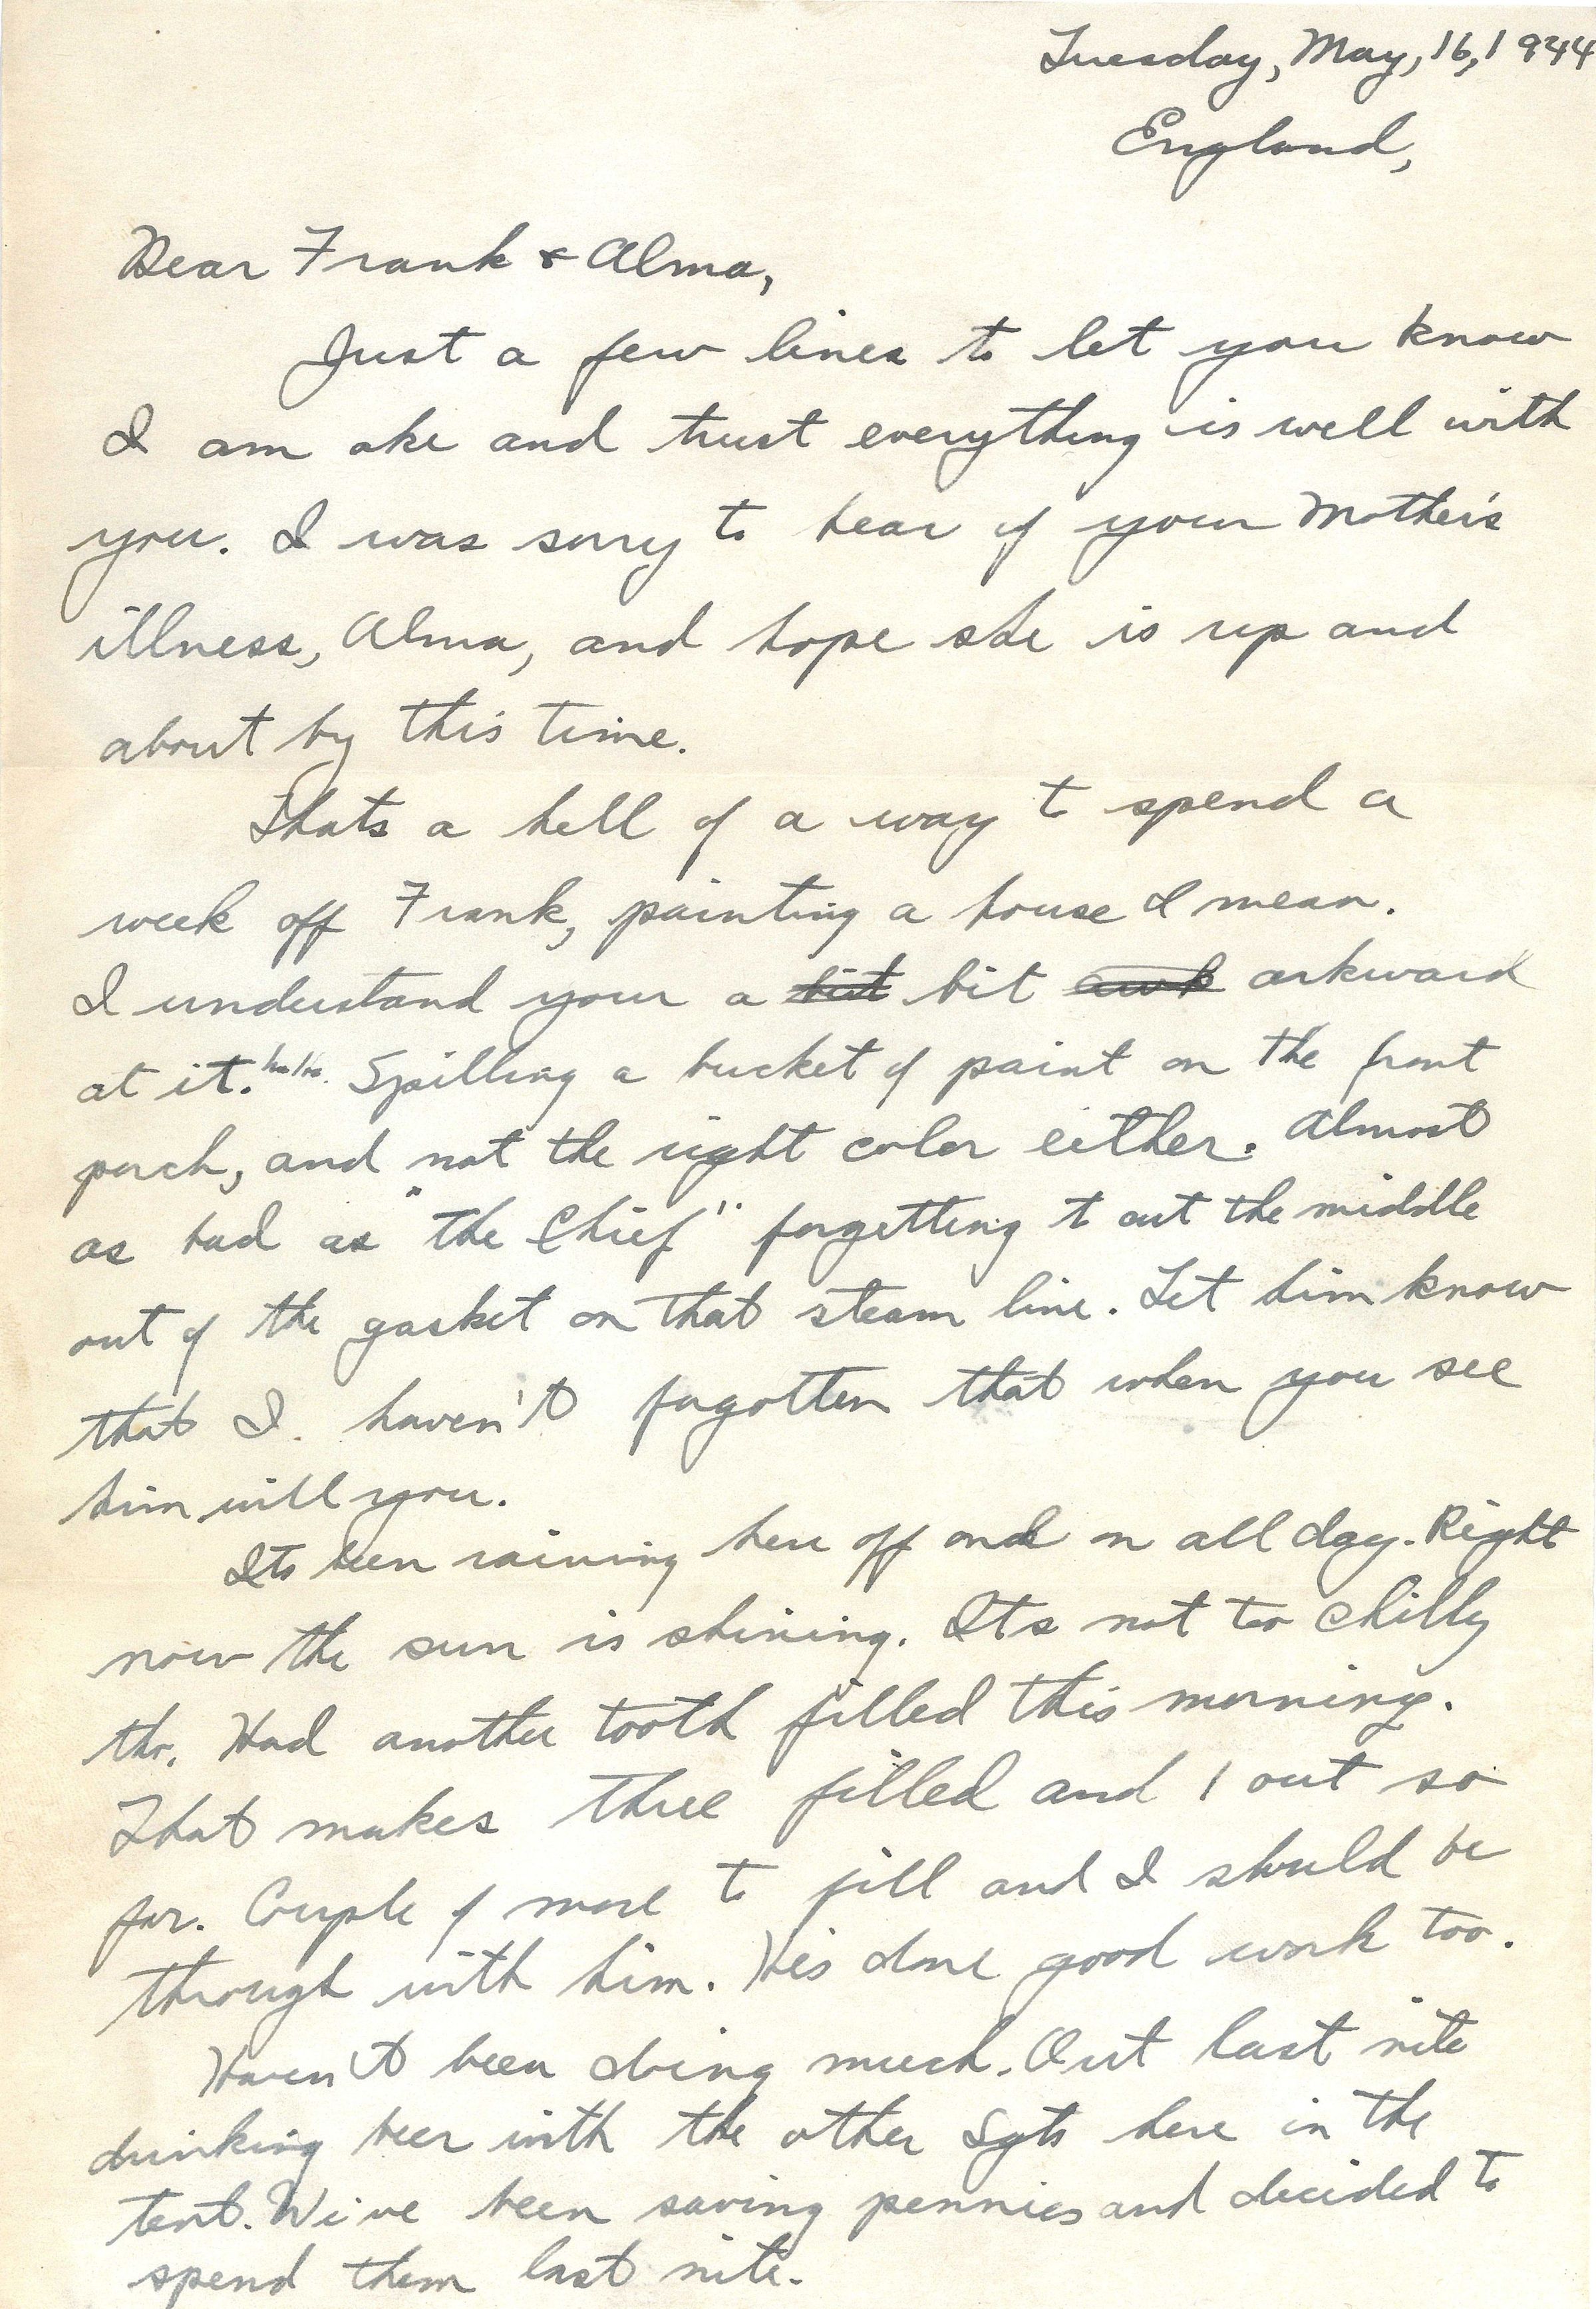 Tuesday, May, 16, 1944
England,
Dear Frank & Alma,
Just a few lines to let you know
I am oke and trust everything is well with
you. I was sorry to hear of your Mother's
illness, Alma, and hope she is up and
about by this time.
Thats a hell of a way to spend a
week off Frank, painting a house I mean.
I understand your a bit bit awk arkward
at it. ha ha. Spilling a bucket of paint on the front
porch, and not the right color either. Almost
as bad as "the Chief" forgetting to cut the middle
out of the gasket on that steam line. Let him know
that I. haven't forgotten that when you see
him will you.
Its been raining here off and on all day. Right
now the sun is shining. Its not too chilly
tho. Had another tooth filled this morning.
That makes three filled and 1 out so
far. Couple of more to fill and I should be
through with him. He's done good work too.
Haven't been doing much. Out last nite
drinking beer with the other Sgts here in the
tent. We've been saving pennies and decided to
spend them last nite.